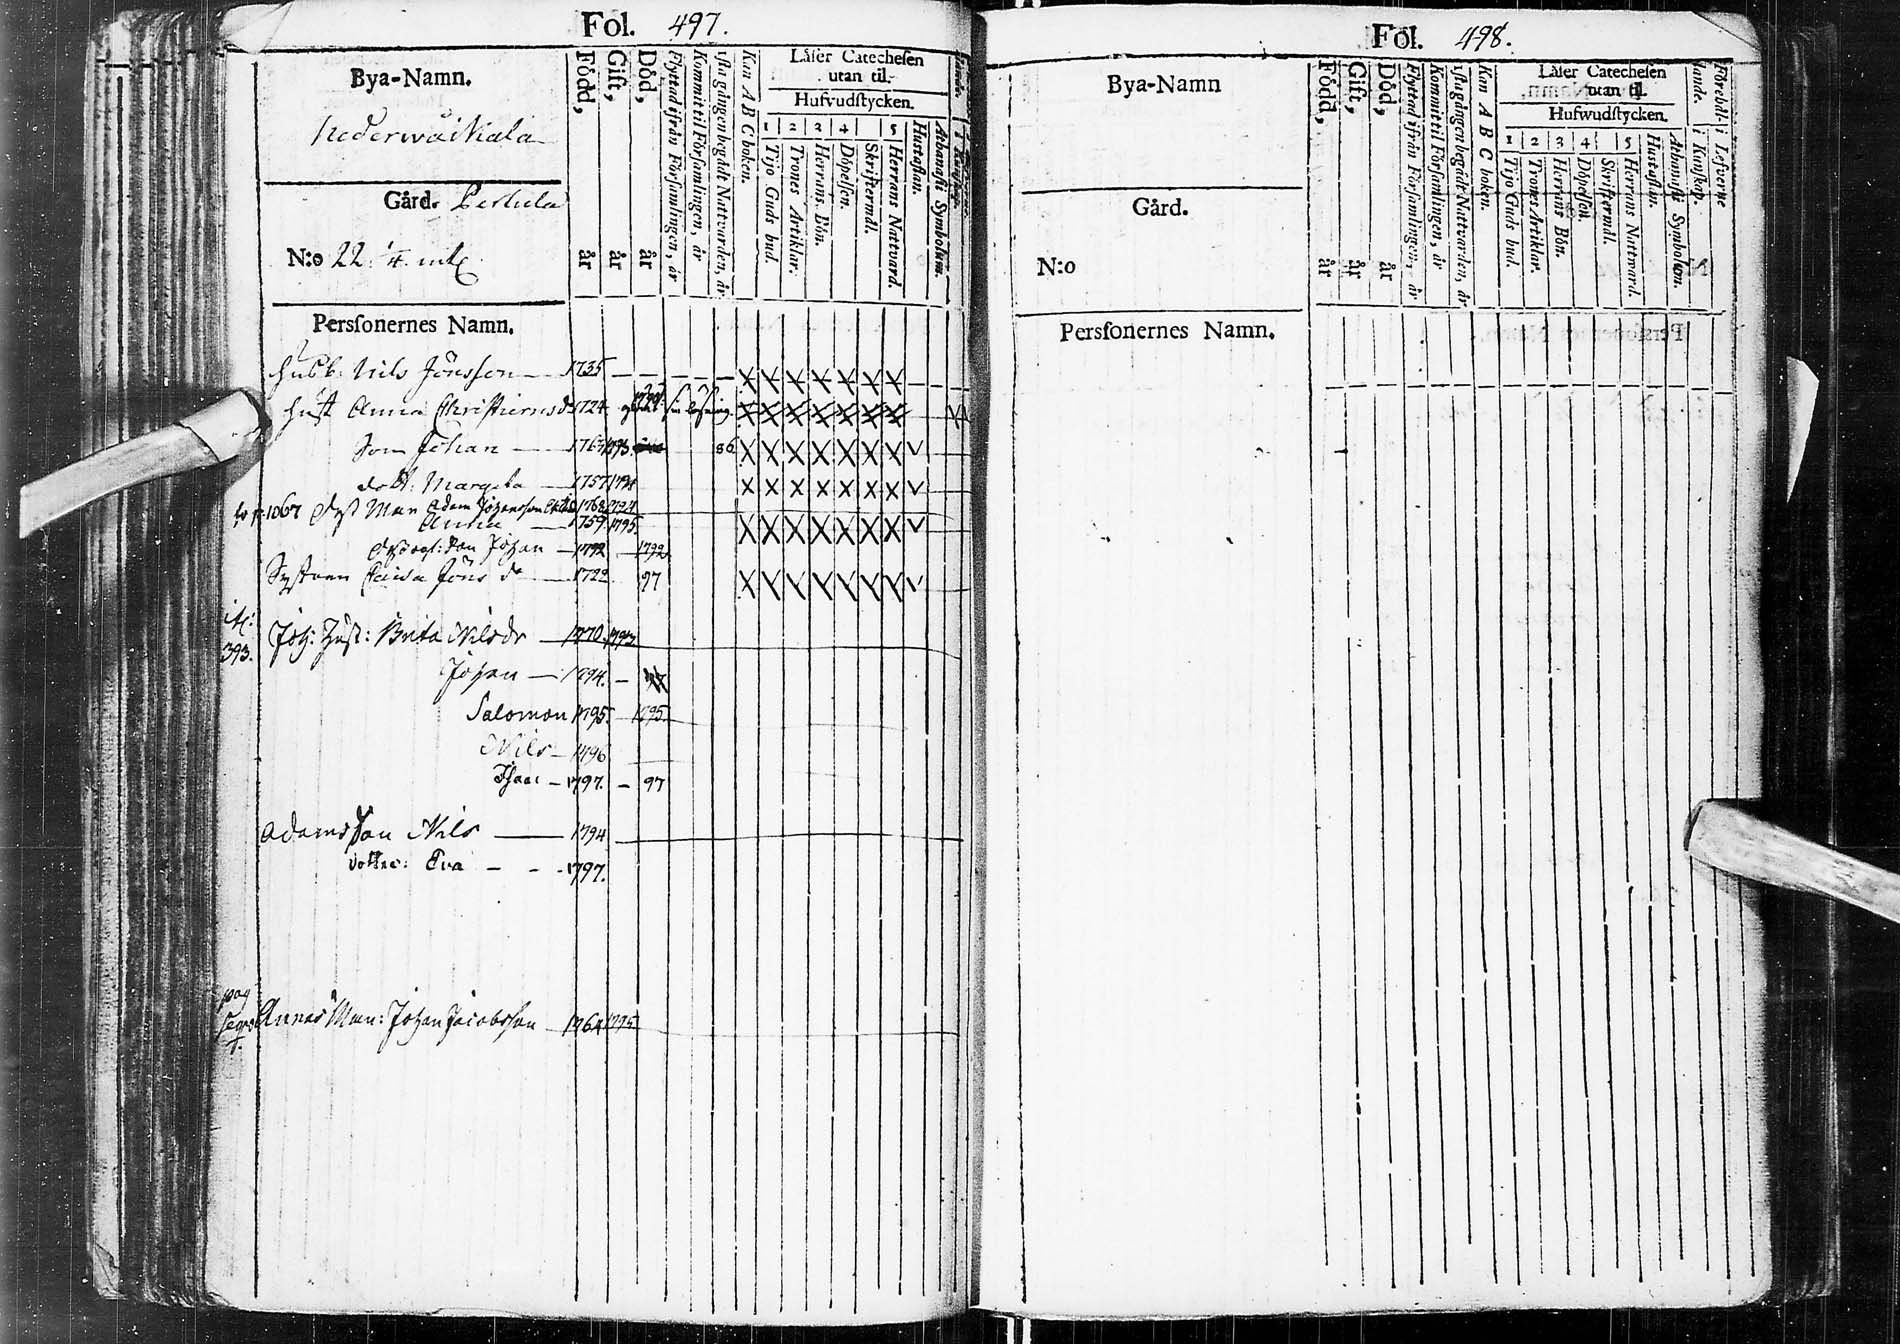 Fol. 497.
Bya-Namn.
Nederwäikala
Gård. Pertula
N:o 22. 1/4. mtl
Född, år
Gift, år
Död, år
Flyttad ifrån Församlingen, år
Kommit til Församlingen, år
1sta gången begådt Nattvarden, år
Kan A B C boken.
Låser Catechesen
utan til.
Hufvudstycken.
1 2 3 4 5
Tijo Guds bud.
Trones Artiklar.
Herrans Bön.
Döpelsen.
Skriftermål.
Herrans Nattvard.
Hustaflan.
Athanasii Symbolum.
Personernes Namn.
Husb. Nils Jönsson 1735
Hust Anna Christiernsd 1724
Son Johan 1763 1793. 86
dott. Margeta 1757 1794
Man Adam Johansson 1768 1794
Anna 1759 1795.
Son Johan 1792 1792
Systren Caisa Jöns dr 1722 97
393. Joh: Hust: Brita Nilsdr 1770 1793
Johan 1794.
Salomon 1795. 1795.
Nils 1796
Isaac 1797. 97
Adams Son Nils 1794
dotter: Eva 1797.
pag
Annas Man: Johan Jacobsson 1764 1795
Fol. 498.
Bya-Namn
Gård.
N:o
Född, år
Gift, år
Död, år
Flyttad ifrån Församlingen, år
Kommit til Församlingen, år
1sta gången begådt Nattvarden, år
Kan A B C boken.
Låser Catechesen
utan til.
Hufwudstycken.
1 2 3 4 5
Tijo Guds bud.
Trones Artiklar.
Herrans Bön.
Döpelsen.
Skriftermål.
Herrans Nattward.
Hustaflan.
Athanasii Symbolum.
i Kunskap.
i Lefverne
Personernes Namn.